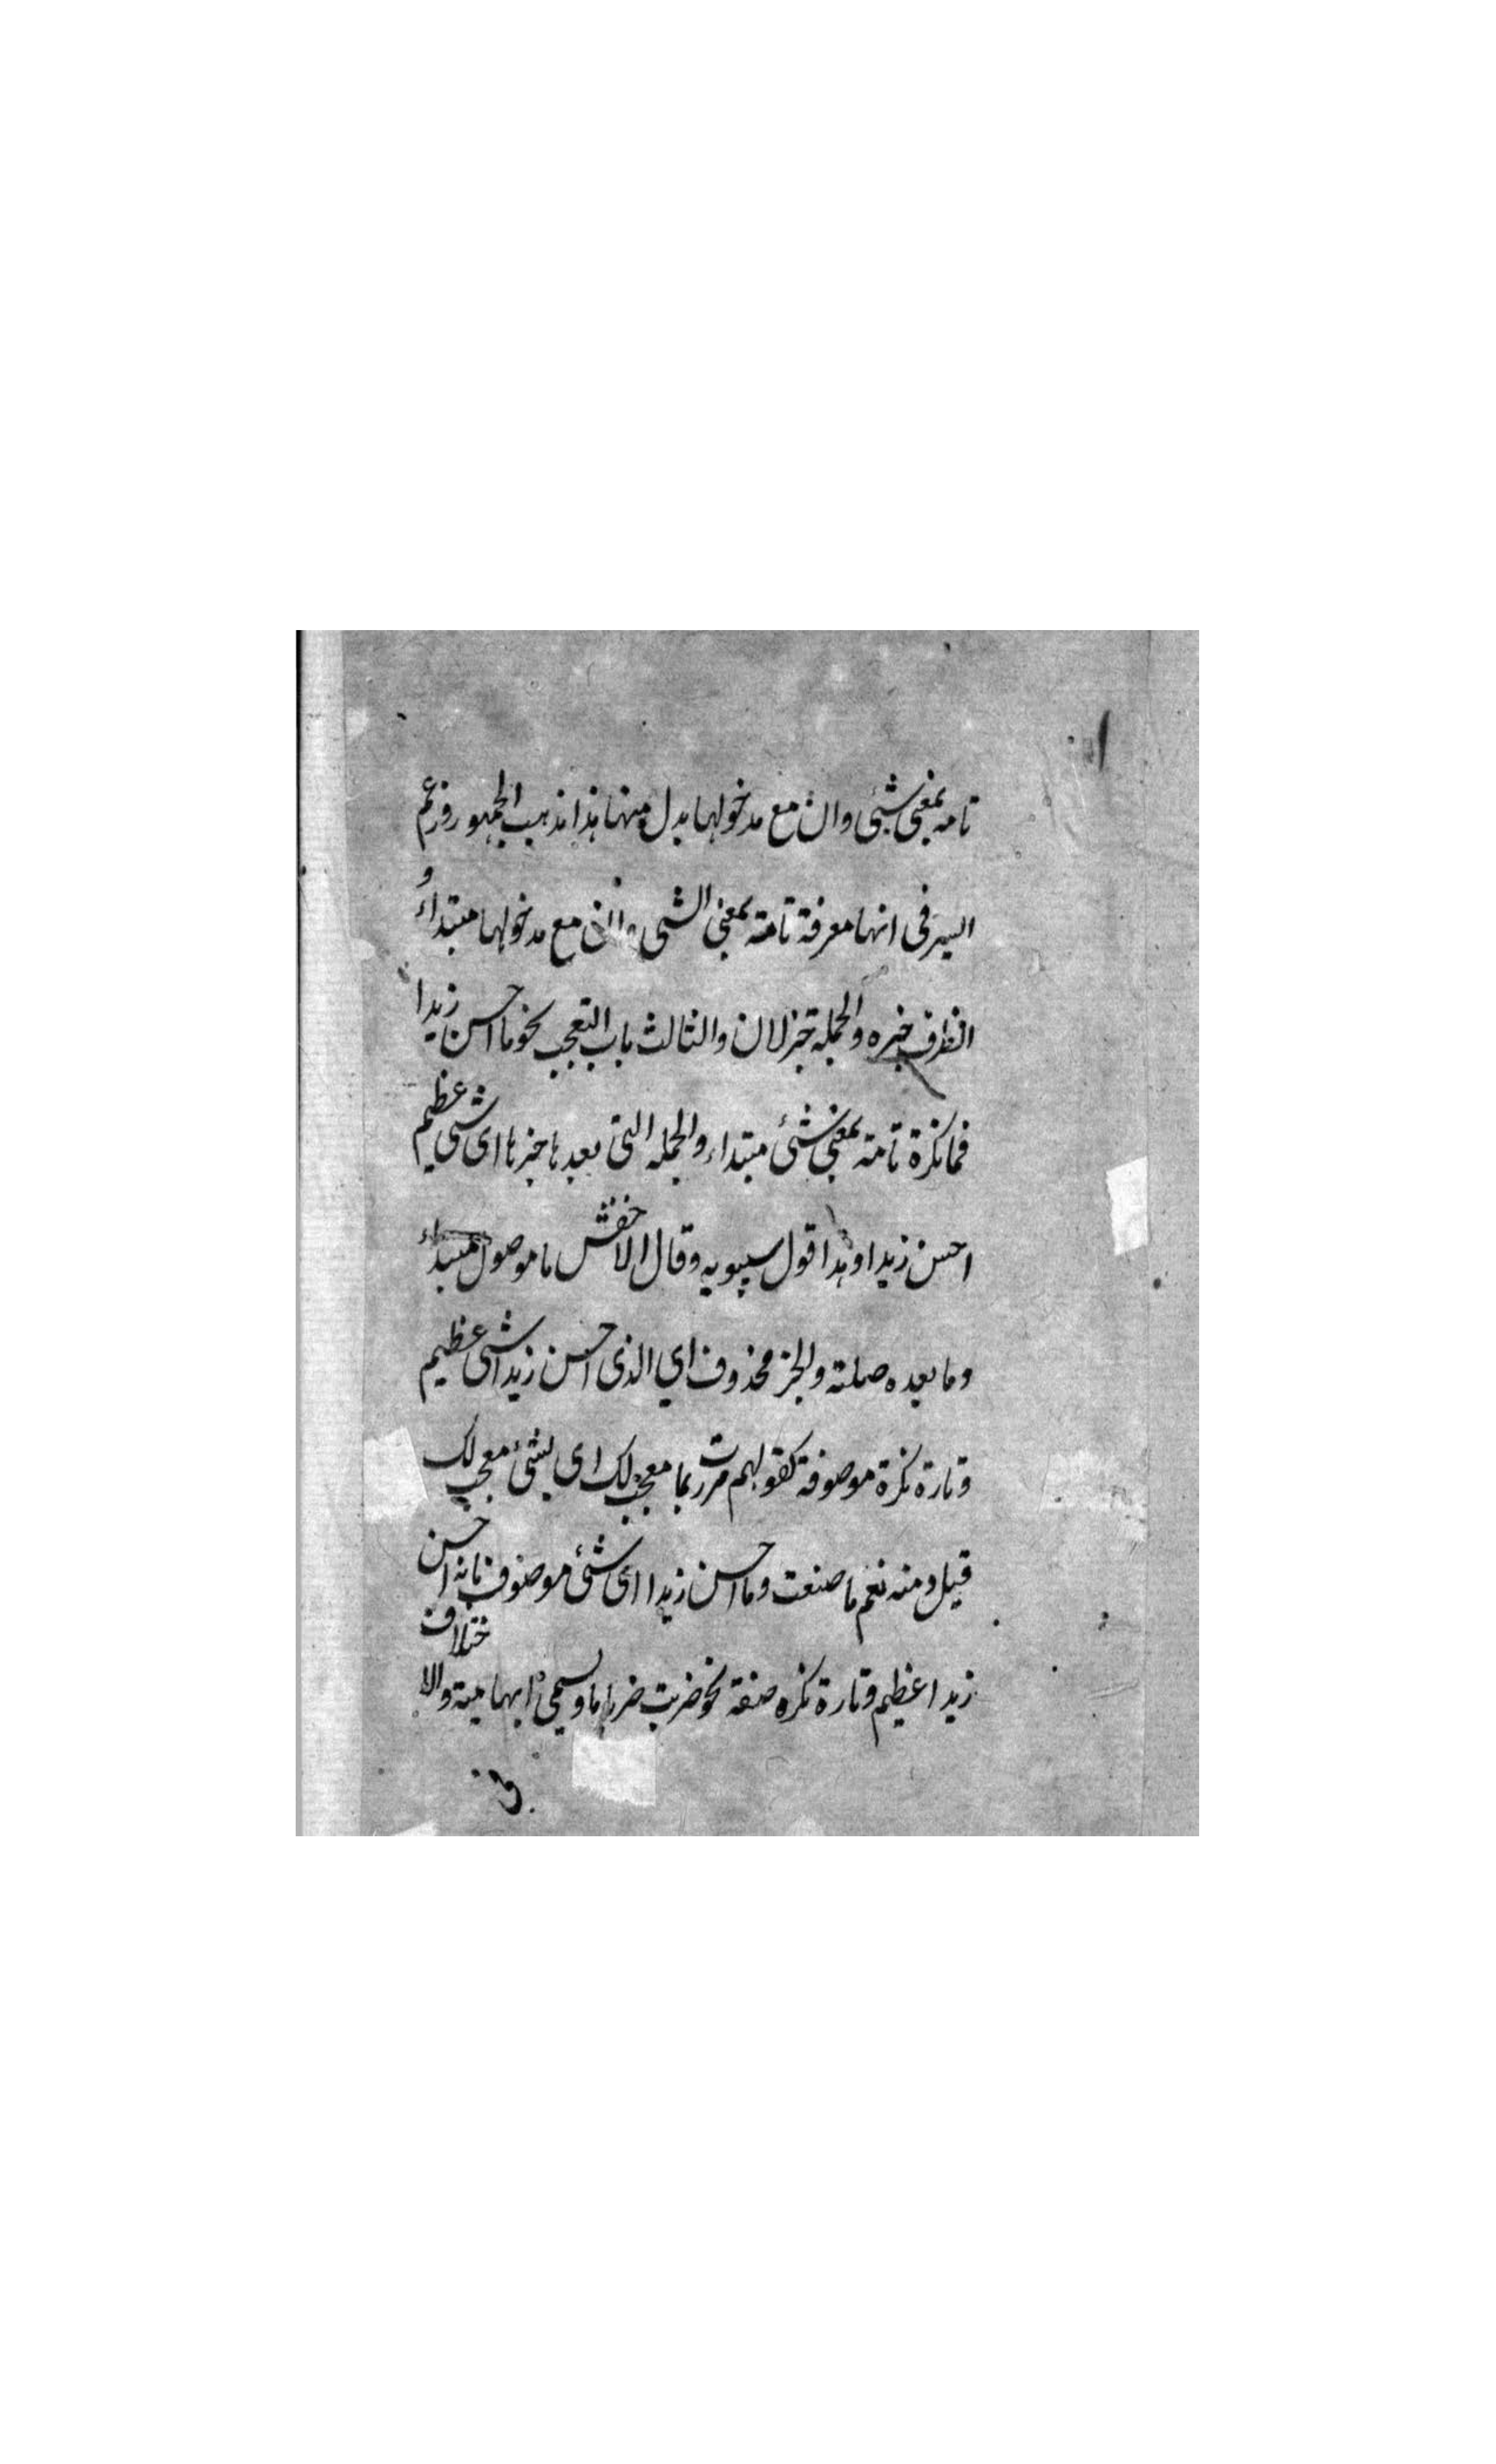 تامه بمعنى شئ وان مع مدخولها بدل منها هذا مذهب الجمهور وزعم
السيرفى انها معرفة تامة بمعنى الشى وان مع مدخولها مبتداء و
الظرف خبره والجملة خبر لان والثالث باب التعجب نحو ما احسن زيدا
فما نكرة تامة بمعنى شئ مبتداء والجملة التى بعدها خبرها اى شى عظيم
احسن زيدا وهذا قول سيبويه وقال الاخفش ما موصول مبتداء
وما بعده صلته والخبر محذوف اي الذى احسن زيدا شى عظيم
وتارة نكرة موصوفة كقولهم مررت بما معجب لك اى بشئ معجب لك
قيل ومنه نعم ما صنعت وما احسن زيدا اى شئ موصوف بانه احسن
زيدا عظيم وتارة نكره صفة نحو ضربت ضربا ما ويسمى ابهامية والاختلاف